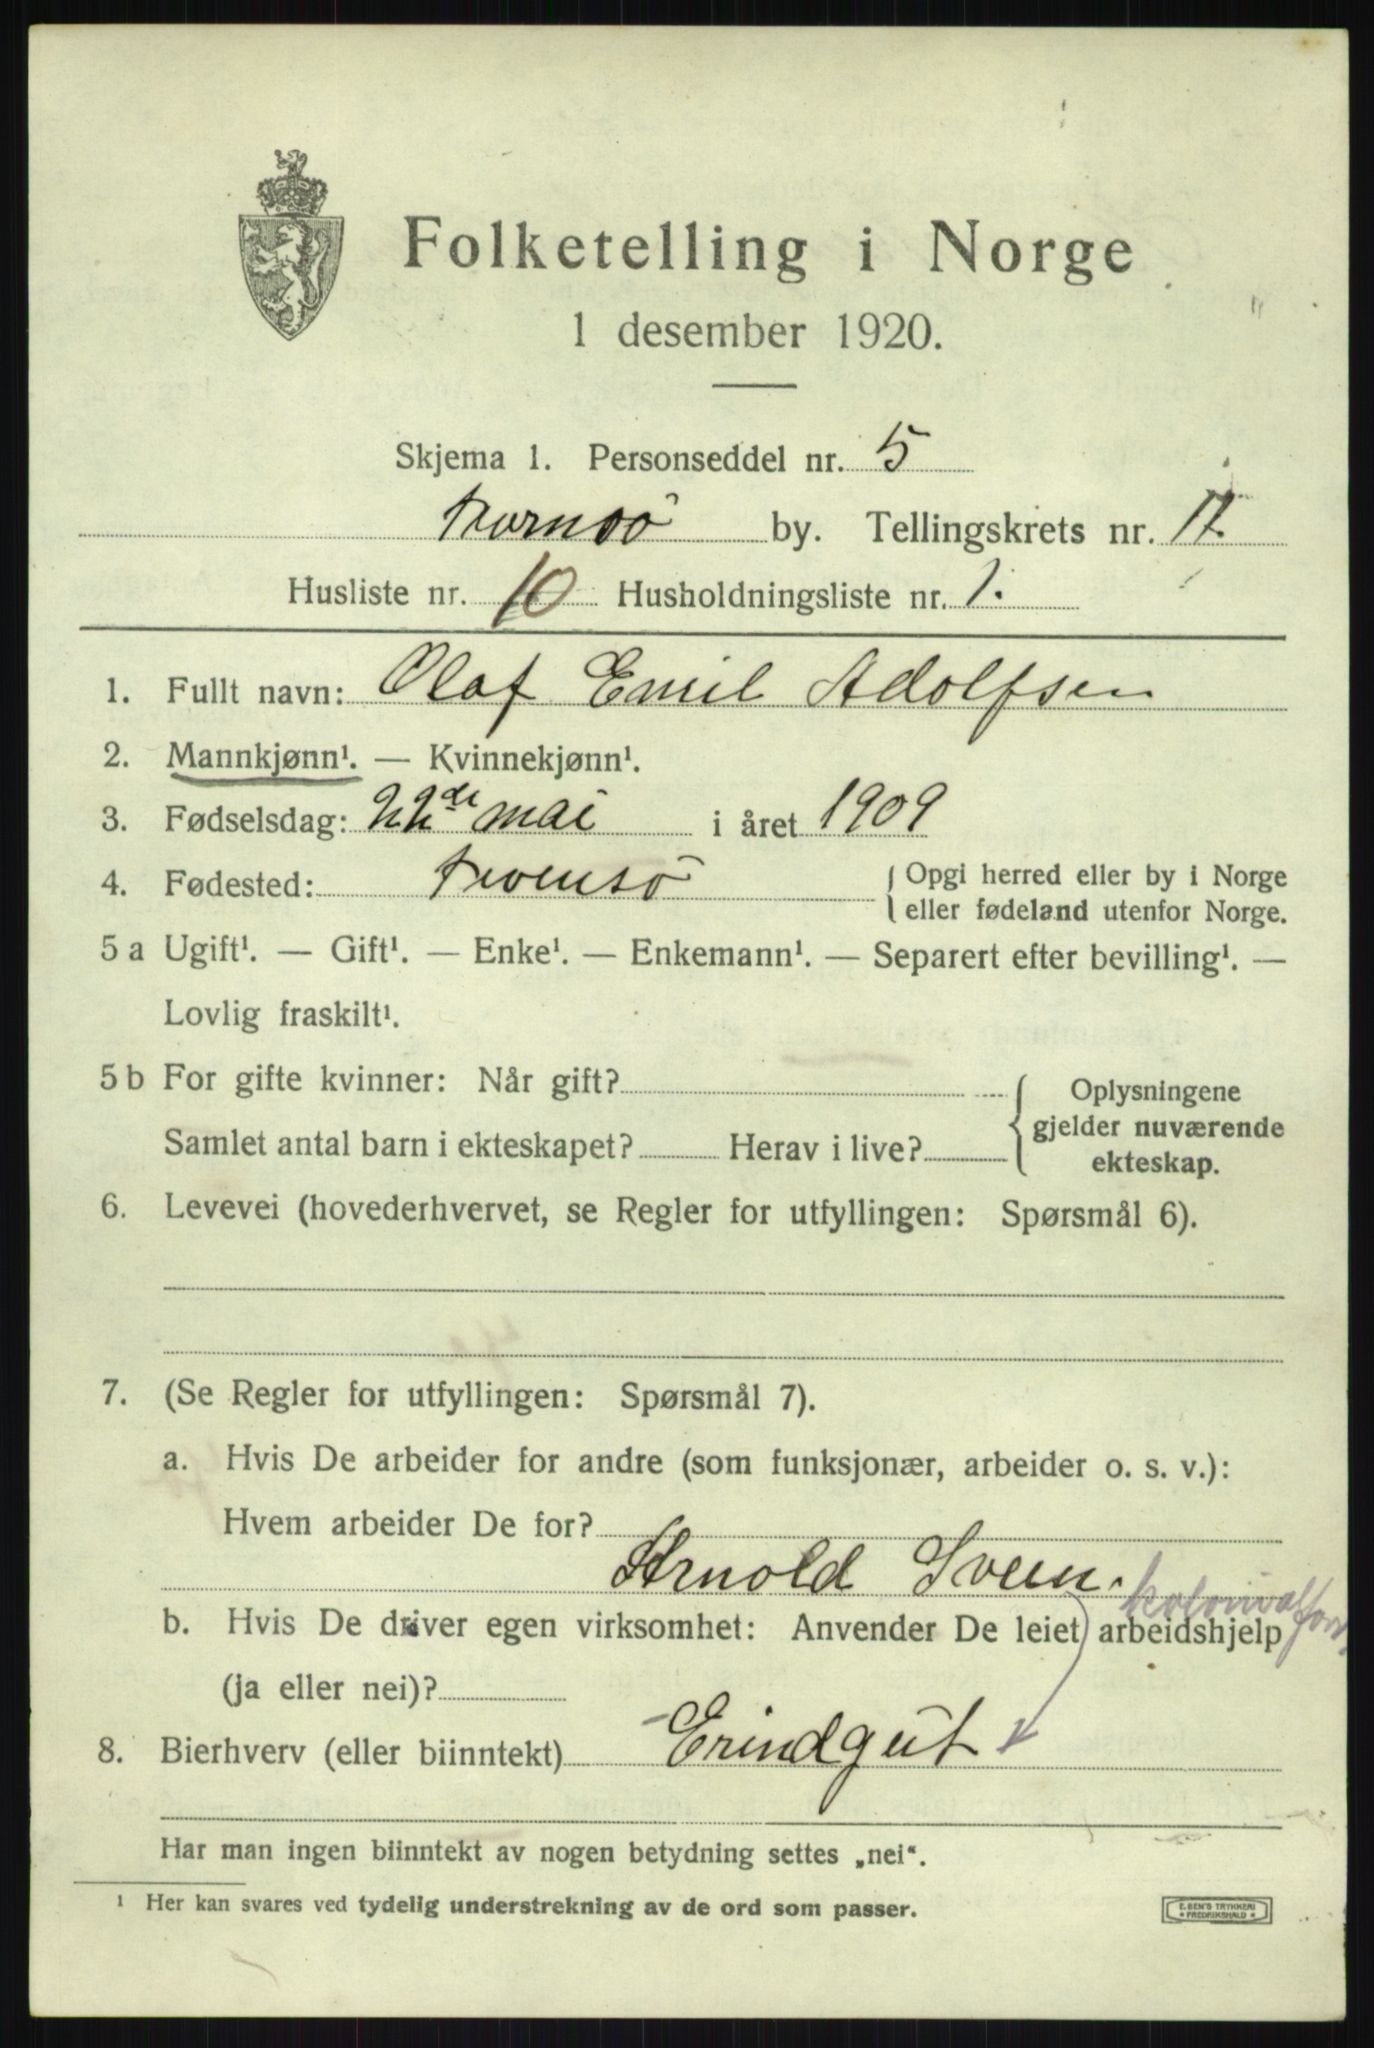 Folketelling i Norge
1 desember 1920.
Skjema 1. Personseddel nr. 5
Tromsö by. Tellingskrets nr. 17.
Husliste nr. 10 Husholdningsliste nr. 1.
1. Fullt navn: Olaf Emil Adolfsen
2. Mannkjønn¹. — Kvinnekjønn¹.
3. Fødselsdag: 22de mai i året 1909
4. Fødested: Tromsö { Opgi herred eller by i Norge
eller fødeland utenfor Norge.
5 a Ugift¹. — Gift¹. — Enke¹. — Enkemann¹. — Separert efter bevilling¹. —
Lovlig fraskilt¹.
5 b For gifte kvinner: Når gift? { Oplysningene
gjelder nuværende
Samlet antal barn i ekteskapet? Herav i live?
ekteskap.
6. Levevei (hovederhvervet, se Regler for utfyllingen: Spørsmål 6).
7. (Se Regler for utfyllingen: Spørsmål 7).
a. Hvis De arbeider for andre (som funksjonær, arbeider o. s. v.):
Hvem arbeider De for?
Arnold Sveen. kolonialforr.
b. Hvis De driver egen virksomhet: Anvender De leiet arbeidshjelp
(ja eller nei)?
8. Bierhverv (eller biinntekt) Erindgut
Har man ingen biinntekt av nogen betydning settes „nei“.
¹ Her kan svares ved tydelig understrekning av de ord som passer.
E. SEM'S TRYKKERI
* FREDRIKSHALD *